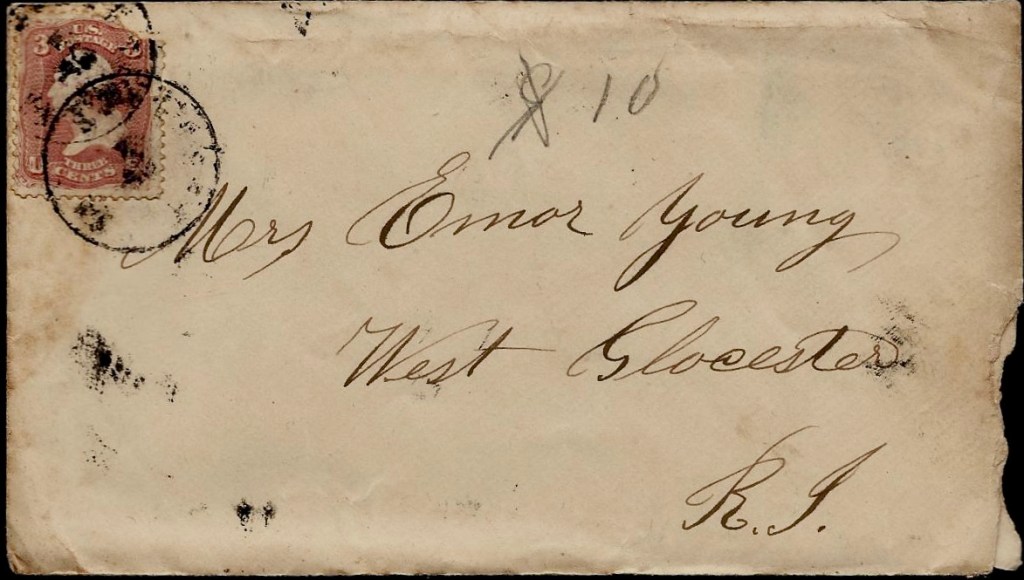 U.S.
3
THREE
CENTS
$ 10
Mrs Emor Young
West Glocester
R.I.